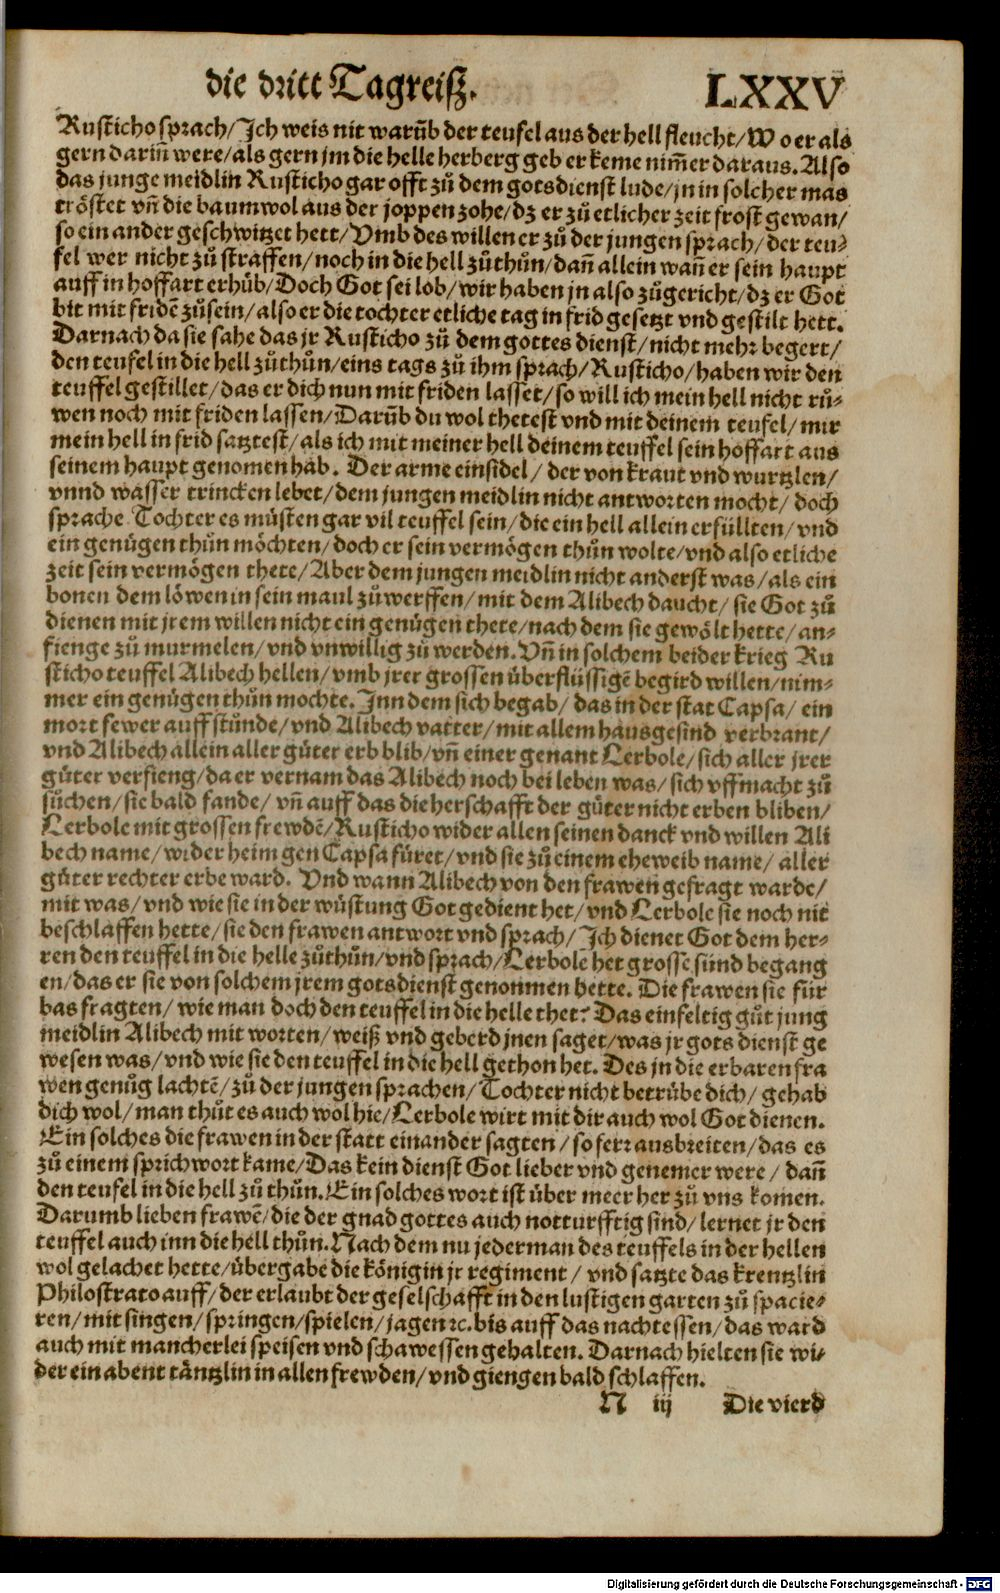 die dritt Tagreiß.
LXXV
Rusticho sprach/Ich weis nit warūb der teufel aus der hell fleucht/Wo er als
gern dariñ were/als gern jm die helle herberg geb er keme nim̄er daraus. Also
das junge meidlin Rusticho gar offt zů dem gotsdienst lude/jn in solcher mas
tröstet vñ die baumwol aus der joppen zohe/dz er zů etlicher zeit frost gewan/
so ein ander geschwitzet hett/Vmb des willen er zů der jungen sprach/der teu⸗
fel wer nicht zů straffen/noch in die hell zůthůn/dañ allein wañ er sein haupt
auff in hoffart erhůb/Doch Got sei lob/wir haben jn also zůgericht/dz er Got
bit mit fridē zůsein/also er die tochter etliche tag in frid gesetzt vnd gestilt hett.
Darnach da sie sahe das jr Rusticho zů dem gottes dienst/nicht mehr begert/
den teufel in die hell zůthůn/eins tags zů ihm sprach/Rusticho/haben wir den
teuffel gestillet/das er dich nun mit friden lasset/so will ich mein hell nicht rů⸗
wen noch mit friden lassen/Darūb du wol thetest vnd mit deinem teufel/mir
mein hell in frid satztest/als ich mit meiner hell deinem teuffel sein hoffart aus
seinem haupt genomen hab. Der arme einsidel/der von kraut vnd wurtzlen/
vnnd wasser trincken lebet/dem jungen meidlin nicht antworten mocht/doch
sprache Tochter es müsten gar vil teuffel sein/die ein hell allein erfüllten/vnd
ein genügen thůn möchten/doch er sein vermögen thůn wolte/vnd also etliche
zeit sein vermögen thete/Aber dem jungen meidlin nicht anderst was/als ein
bonen dem löwen in sein maul zůwerffen/mit dem Alibech daucht/sie Got zů
dienen mit jrem willen nicht ein genügen thete/nach dem sie gewölt hette/an⸗
fienge zů murmelen/vnd vnwillig zů werden. Vñ in solchem beider krieg Ru
sticho teuffel Alibech hellen/vmb jrer grossen überflüssigē begird willen/nim⸗
mer ein genügen thůn mochte. Inn dem sich begab/das in der stat Capsa/ein
mort fewer auff stůnde/vnd Alibech vatter/mit allem hausgesind verbrant/
vnd Alibech allein aller güter erb blib/vñ einer genant Lerbole/sich aller jrer
güter verfieng/da er vernam das Alibech noch bei leben was/sich vffmacht zů
sůchen/sie bald fande/vñ auff das die herschafft der güter nicht erben bliben/
Lerbole mit grossen frewdē/Rusticho wider allen seinen danck vnd willen Ali
bech name/wider heim gen Capsa füret/vnd sie zů einem eheweib name/aller
güter rechter erbe ward. Vnd wann Alibech von den frawen gefragt warde/
mit was/vnd wie sie in der wüstung Got gedient het/vnd Lerbole sie noch nit
beschlaffen hette/sie den frawen antwort vnd sprach/Ich dienet Got dem her⸗
ren den teuffel in die helle zůthůn/vnd sprach/Lerbole het grosse sünd begang
en/das er sie von solchem jrem gotsdienst genommen hette. Die frawen sie für
bas fragten/wie man doch den teuffel in die helle thet? Das einfeltig gůt jung
meidlin Alibech mit worten/weiß vnd geberd jnen saget/was jr gots dienst ge
wesen was/vnd wie sie den teuffel in die hell gethon het. Des jn die erbaren fra
wen genůg lachtē/zů der jungen sprachen/Tochter nicht betrübe dich/gehab
dich wol/man thůt es auch wol hie/Lerbole wirt mit dir auch wol Got dienen.
Ein solches die frawen in der statt einander sagten/so ferr ausbreiten/das es
zů einem sprichwort kame/Das kein dienst Got lieber vnd genemer were/dañ
den teufel in die hell zů thůn. Ein solches wort ist über meer her zů vns komen.
Darumb lieben frawē/die der gnad gottes auch notturfftig sind/lernet jr den
teuffel auch inn die hell thůn. Nach dem nu jederman des teuffels in der hellen
wol gelachet hette/übergabe die königin jr regiment/vnd satzte das krentzlin
Philostrato auff/der erlaubt der geselschafft in den lustigen garten zů spacie⸗
ren/mit singen/springen/spielen/jagen ꝛc. bis auff das nachtessen/das ward
auch mit mancherlei speisen vnd schawessen gehalten. Darnach hielten sie wi⸗
der ein abent täntzlin in allen frewden/vnd giengen bald schlaffen.
N iij Die vierd
Digitalisierung gefördert durch die Deutsche Forschungsgemeinschaft - DFG